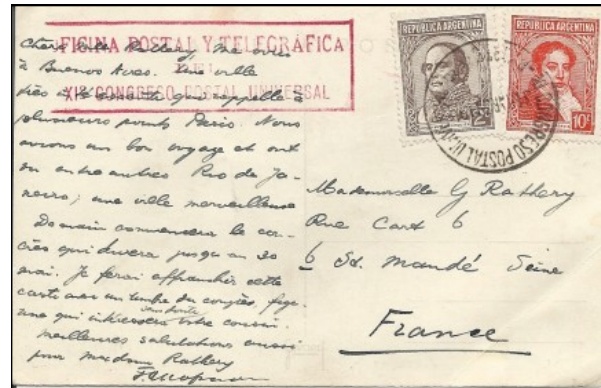 OFICINA POSTAL Y TELEGRÁFICA
DEL
XI° CONGRESO POSTAL UNIVERSAL
REPUBLICA ARGENTINA
2
REPUBLICA ARGENTINA
10
CONGRESO POSTAL
Rathery, me
à Buenos Aires. Une ville
très qui rappelle à
plusieurs points Paris. Nous
avons un bon voyage et ont
vu entre autres Rio de Ja-
neiro, une ville merveilleuse
Demain commencera le con-
grès qui durera jusqu'au 20
mai. Je ferai affranchir cette
carte avec un timbre du congrès,
une qui intéressera sans doute votre cousin.
meilleures salutations aussi
pour madame Rathery
Mademoiselle G Rathery
Rue Cart 6
6 St. Mandé Seine
France